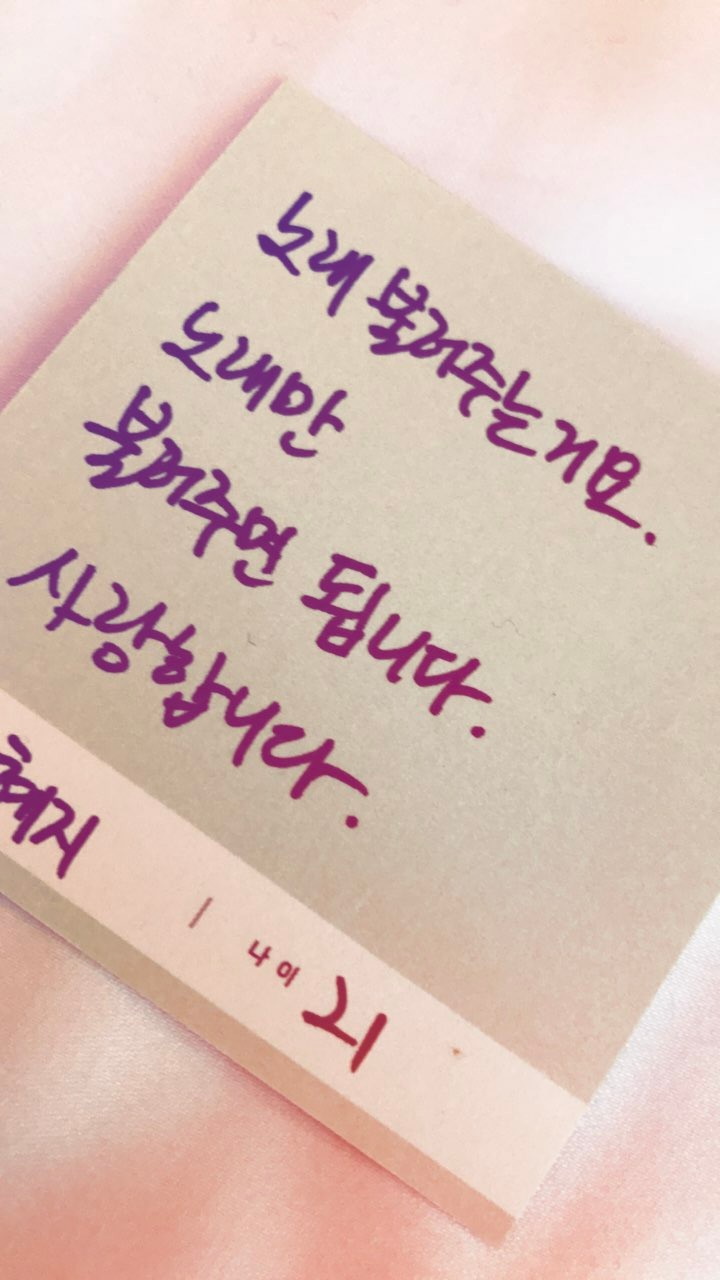 노래 불러주는거요.
노래만
불러주면 됩니다.
사랑합니다.
혜지 | 나이 21